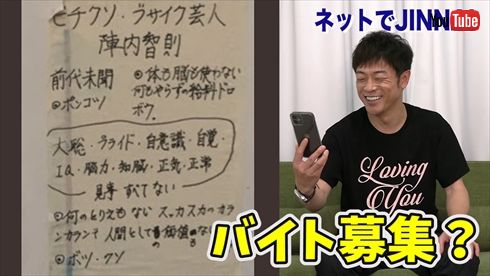 ヒチクソ・ブサイク芸人
陣内智則
前代未聞
◎ポンコツ
◎体も脳も使わない
何もやらずの給料ドロ
ボウ。
大脳・プライド・自意識・自覚・
IQ・脳力・知脳・正気・正常
見事すべてない
◎何のとりえもないスッカスカのオー
カランで人間として価値
◎ボツ・クソ
ネットでJINN
YouTube
Loving
You
バイト募集？